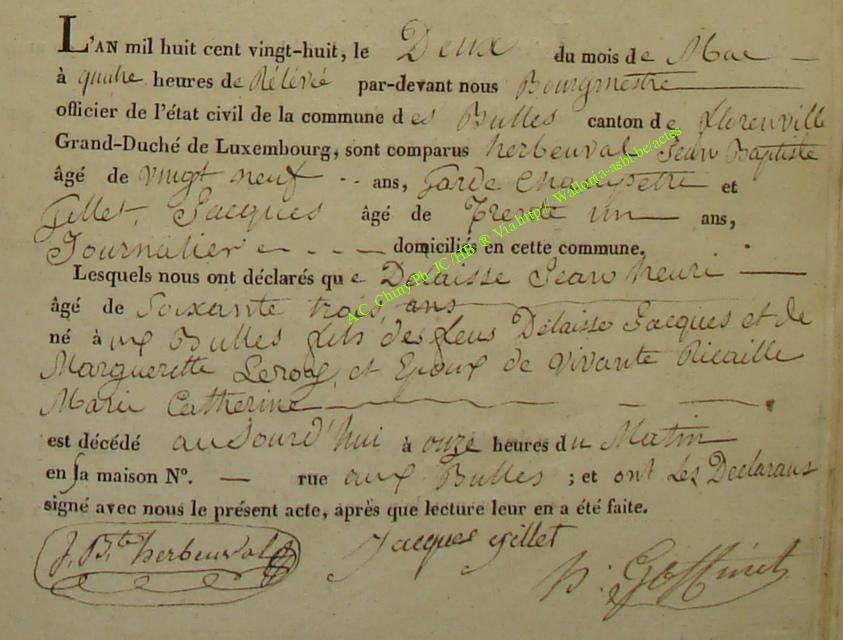 L'AN mil huit cent vingt-huit, le Deux du mois de Mae
à quatre heures de Rélévée par-devant nous Bourgmestre
officier de l'état civil de la commune des Bulles canton de florenville
Grand-Duché de Luxembourg, sont comparus herbeuval Jean Baptiste
âgé de vingt neuf ans, Garde Champetre et
Gillet, Jacques âgé de Trente un ans,
Journalier domiciliés en cette commune.
Lesquels nous ont déclarés que Delaisse Jean henri
âgé de Soixante trois ans
né à ux Bulles fils des feus Delaisse Jacques et de
Marguerette Leroy, et Epoux de vivante Ricaille
Marie Catherine
est décédé aujourd'hui à onze heures du Matin
en sa maison N°. — rue aux Bulles ; et ont Les Declarans
signé avec nous le présent acte, après que lecture leur en a été faite.
J. Bte herbeuval Jacques gillet h: Goffinet
A.C. Chiny Ph JC/HB ® Via http: Wallonia-asbl.be/actes